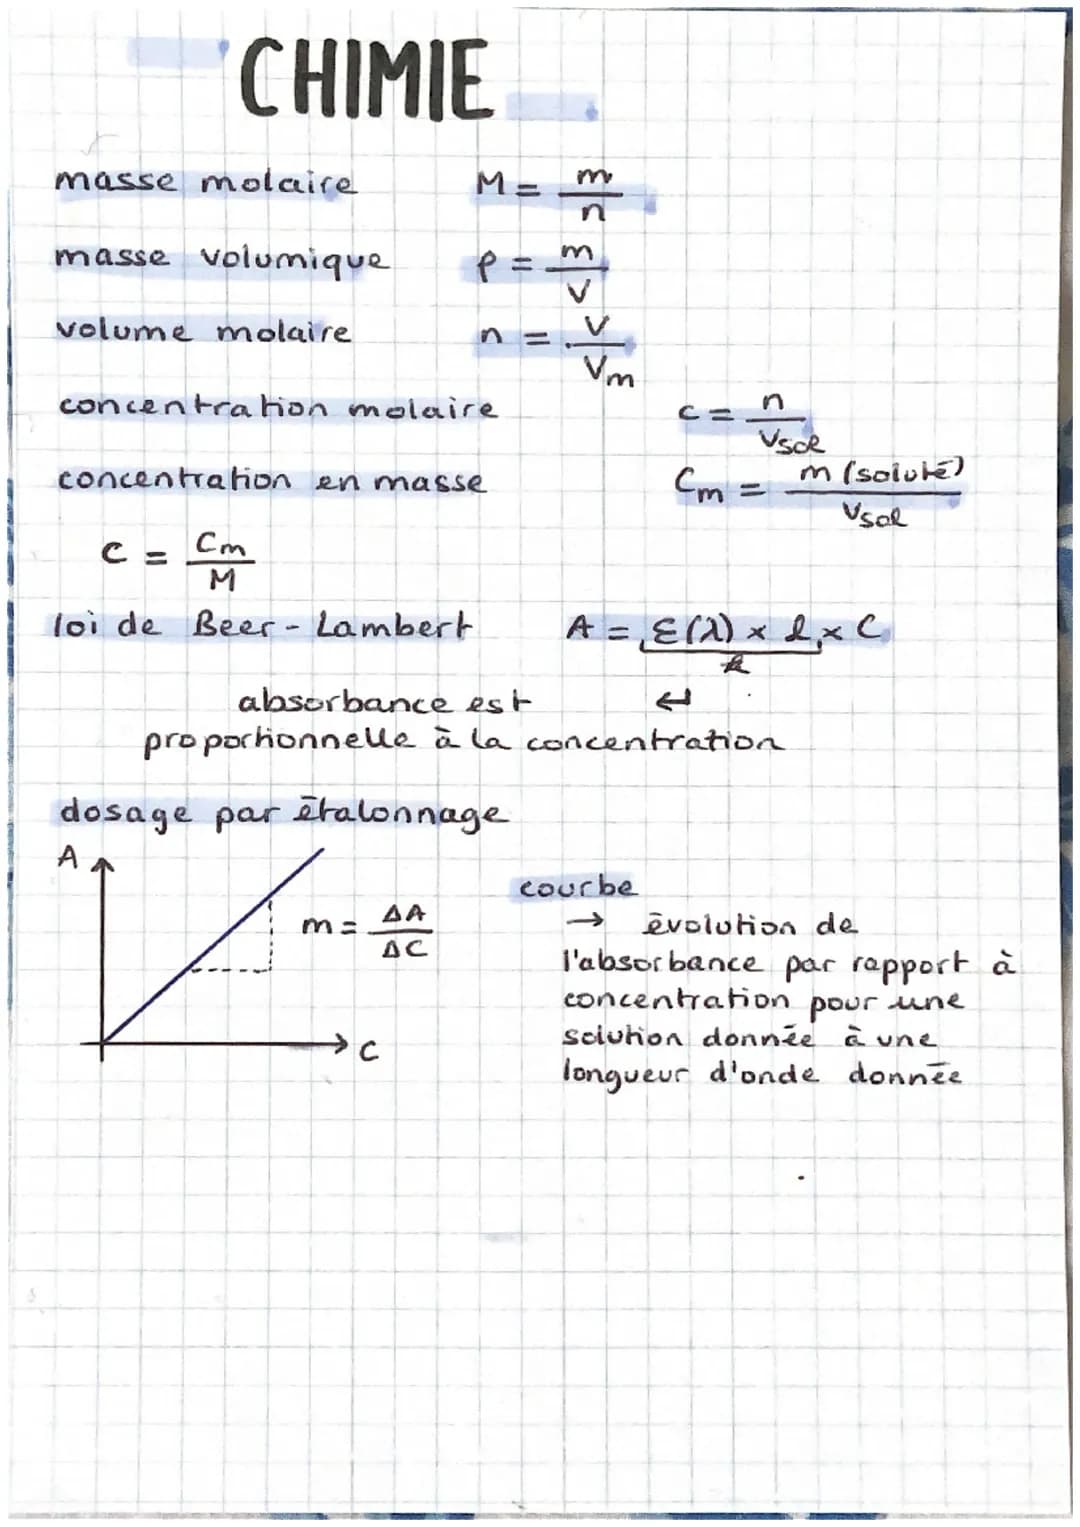 CHIMIE
masse molaire M = m/n
masse volumique ρ = m/V
volume molaire n = V/Vm
concentration molaire c = n/Vsol
concentration en masse Cm = m (soluté)/Vsol
C = Cm/M
loi de Beer - Lambert A = ε(λ) × l × C
k
absorbance est ↵
proportionnelle à la concentration
dosage par étalonnage
A
m = ΔA/ΔC
C
courbe
→ évolution de
l'absorbance par rapport à
concentration pour une
solution donnée à une
longueur d'onde donnée